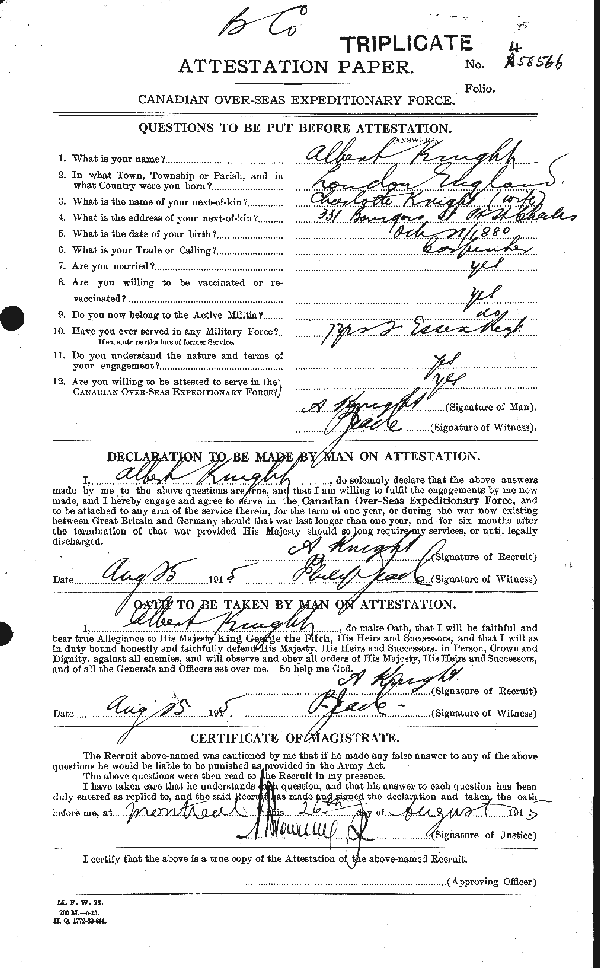 B Co
TRIPLICATE
ATTESTATION PAPER.
No. A55566
Folio.
CANADIAN OVER-SEAS EXPEDITIONARY FORCE.
QUESTIONS TO BE PUT BEFORE ATTESTATION.
1. What is your name? Albert Knight
2. In what Town, Township or Parish, and in
what Country were you born? London England
3. What is the name of your next-of-kin? Charlotte Knight (wife)
4. What is the address of your next-of-kin? 331 St Pt St Charles
5. What is the date of your birth? Oct 1880
6. What is your Trade or Calling? Carpenter
7. Are you married? yes
8. Are you willing to be vaccinated or re-
vaccinated? yes
9. Do you now belong to the Active Militia?
10. Have you ever served in any Military Force? Essex Regt
If so, state particulars of former Service.
11. Do you understand the nature and terms of
your engagement? yes
12. Are you willing to be attested to serve in the
CANADIAN OVER-SEAS EXPEDITIONARY FORCE? yes
A Knight (Signature of Man).
(Signature of Witness).
DECLARATION TO BE MADE BY MAN ON ATTESTATION.
I, Albert Knight, do solemnly declare that the above answers
made by me to the above questions are true, and that I am willing to fulfil the engagements by me now
made, and I hereby engage and agree to serve in the Canadian Over-Seas Expeditionary Force, and
to be attached to any arm of the service therein, for the term of one year, or during the war now existing
between Great Britain and Germany should that war last longer than one year, and for six months after
the termination of that war provided His Majesty should so long require my services, or until legally
discharged.
A Knight (Signature of Recruit)
Date Aug 25 1915 (Signature of Witness)
OATH TO BE TAKEN BY MAN ON ATTESTATION.
I, Albert Knight, do make Oath, that I will be faithful and
bear true Allegiance to His Majesty King George the Fifth, His Heirs and Successors, and that I will as
in duty bound honestly and faithfully defend His Majesty, His Heirs and Successors, in Person, Crown and
Dignity, against all enemies, and will observe and obey all orders of His Majesty, His Heirs and Successors,
and of all the Generals and Officers set over me. So help me God.
A Knight (Signature of Recruit)
Date Aug 25 1915 (Signature of Witness)
CERTIFICATE OF MAGISTRATE.
The Recruit above-named was cautioned by me that if he made any false answer to any of the above
questions he would be liable to be punished as provided in the Army Act.
The above questions were then read to the Recruit in my presence.
I have taken care that he understands each question, and that his answer to each question has been
duly entered as replied to, and the said Recruit has made and signed the declaration and taken the oath
before me, at Montreal this 26th day of August 1915
(Signature of Justice)
I certify that the above is a true copy of the Attestation of the above-named Recruit.
(Approving Officer)
M. F. W. 23.
H. Q. 1772-39-